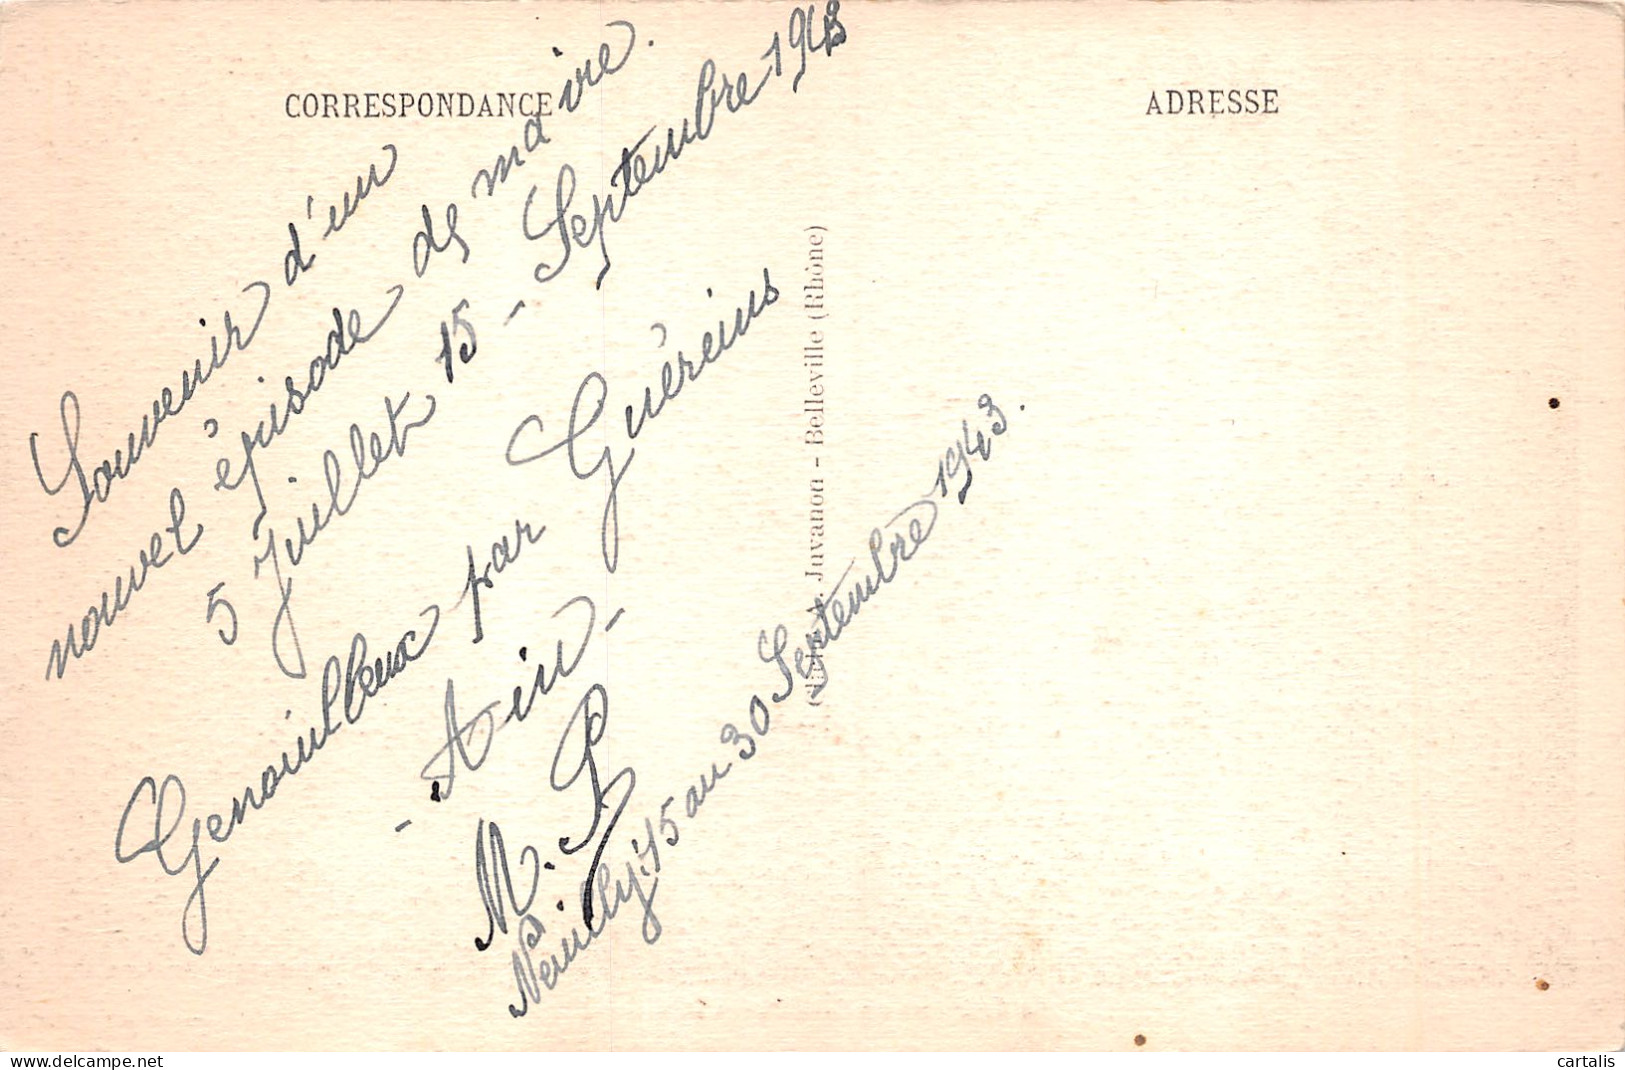 CORRESPONDANCE
ADRESSE
Souvenir d'un
nouvel épisode de ma vie.
5 Juillet 15 - Septembre 1943
Genouilleux par Guéreins
- Ain -
M. P.
Neuilly: 15 au 30 Septembre 1943.
Juvanon - Belleville (Rhône)
cartalis
delcampe.net